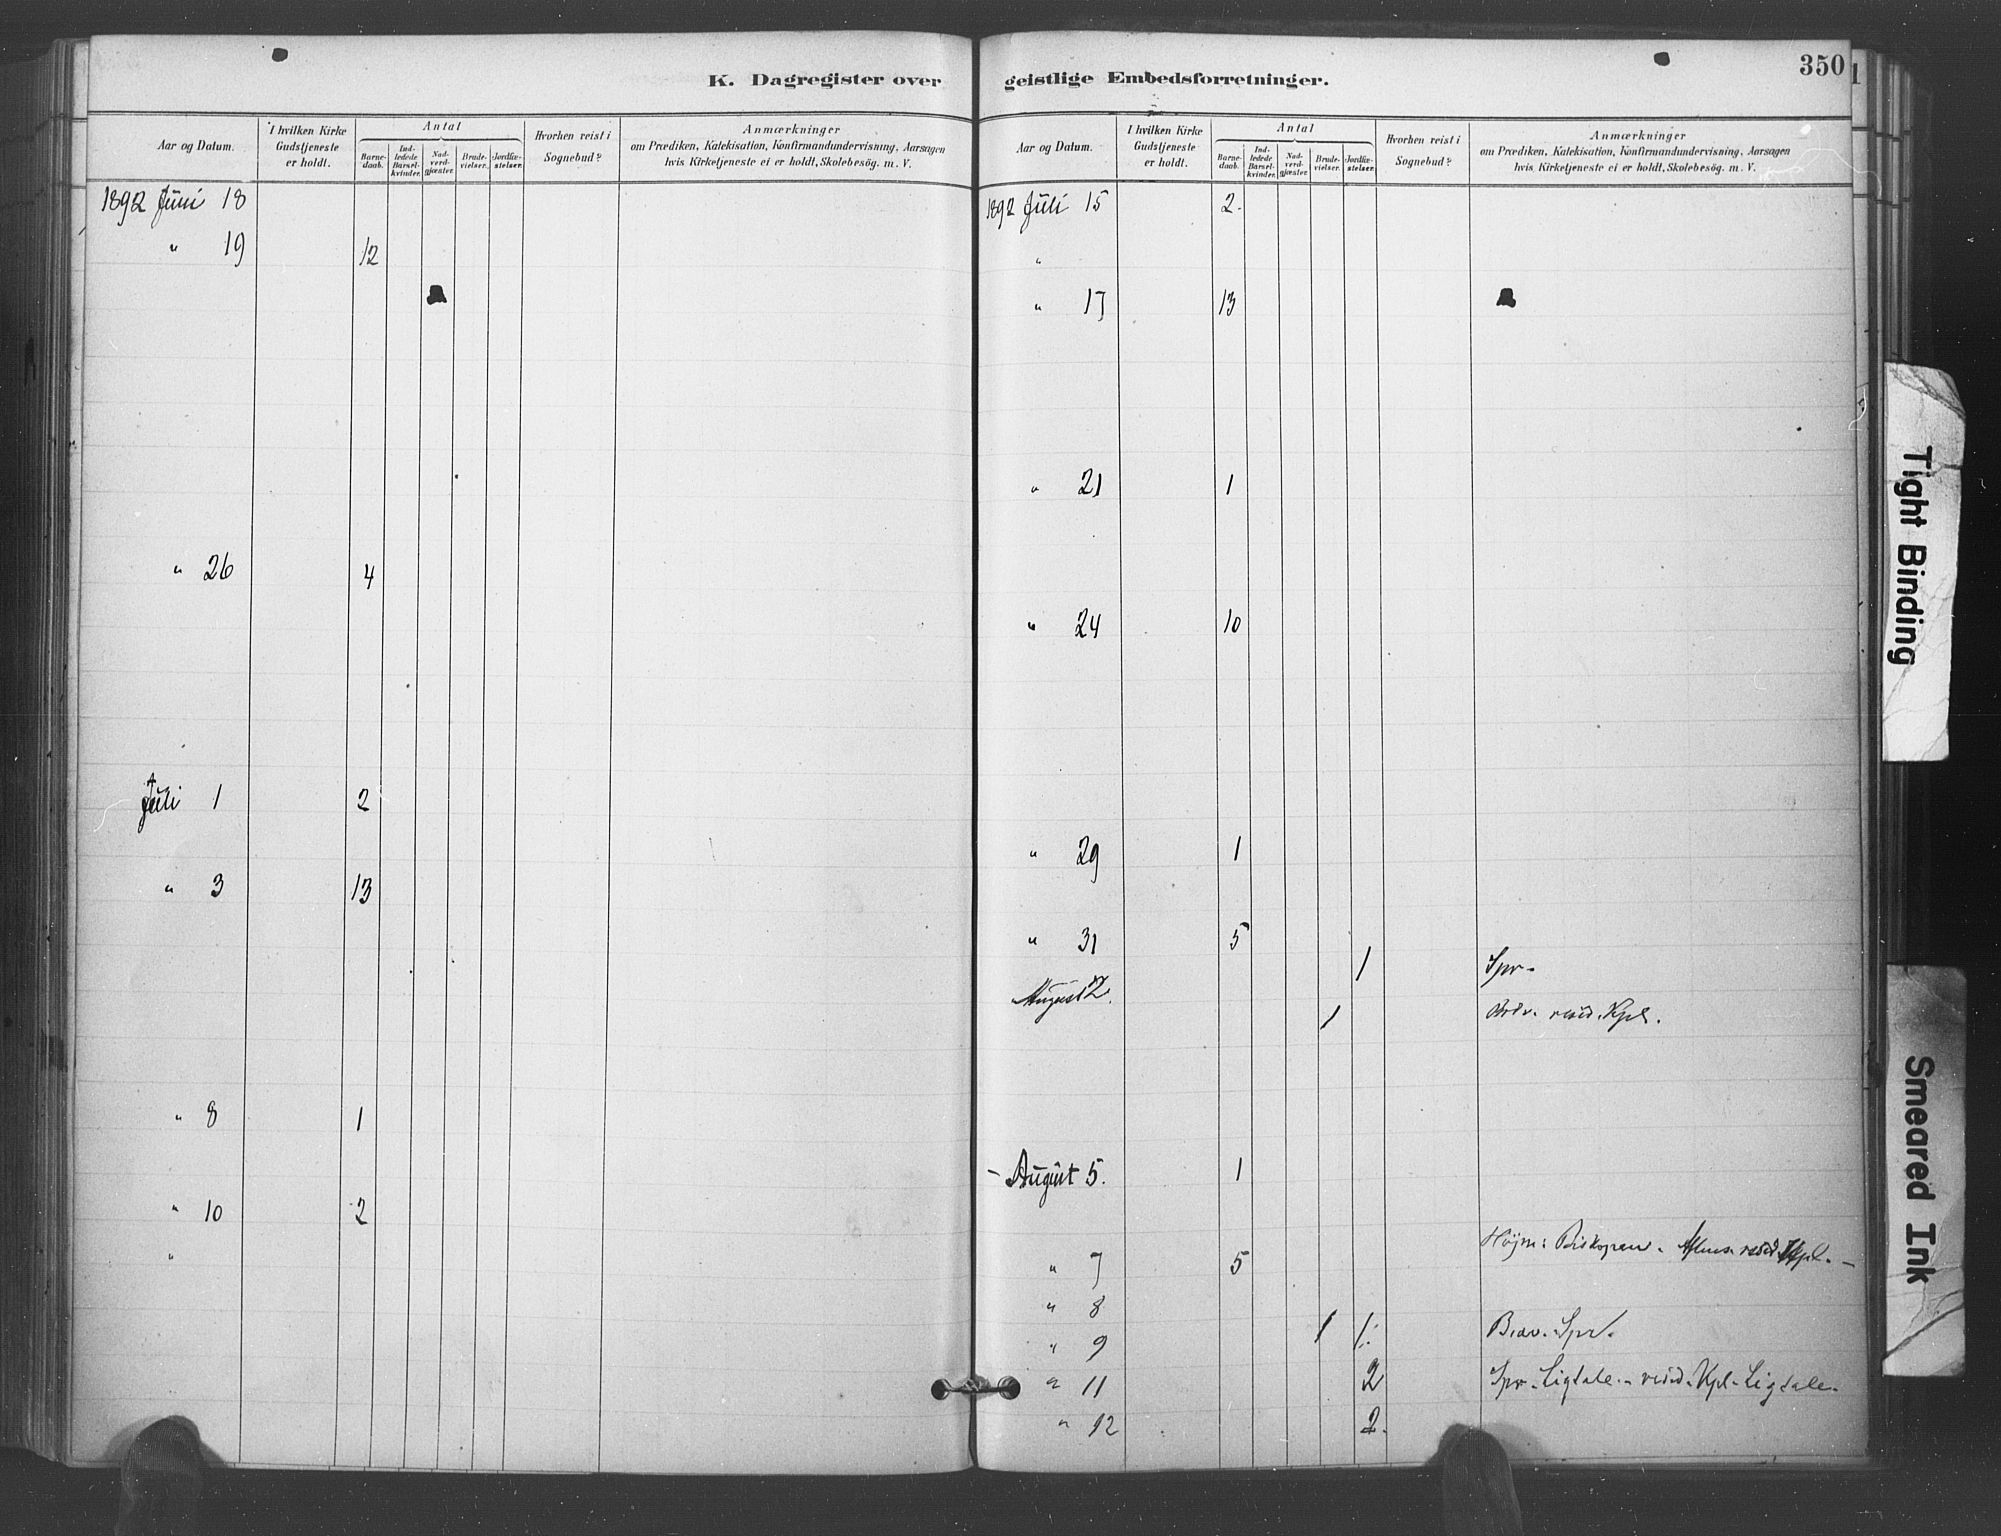 K. Dagregister over
Aar og Datum.
I hvilken Kirke Gudstjeneste er holdt.
Antal
Barne-daab.
Ind-ledede Barsel-kvinder.
Nad-verd-gjæster.
Brude-vielser.
Jordfæ-stelser.
Hvorhen reist i Sognebud?
Anmærkninger
om Prædiken, Katekisation, Konfirmandundervisning, Aarsagen
hvis Kirketjeneste ei er holdt, Skolebesög. m. V.
1892 Juni 18
" 19 12
" 26 4
Juli 1 2
" 3 13
" 8 1
" 10 2
"
geistlige Embedsforretninger.
350
Aar og Datum.
I hvilken Kirke Gudstjeneste er holdt.
Antal
Barne-daab.
Ind-ledede Barsel-kvinder.
Nad-verd-gjæster.
Brude-vielser.
Jordfæ-stelser.
Hvorhen reist i Sognebud?
Anmærkninger
om Prædiken, Katekisation, Konfirmandundervisning, Aarsagen
hvis Kirketjeneste ei er holdt, Skolebesög. m. V.
1892 Juli 15 2.
"
" 17 13
" 21 1
" 24 10
" 29 1
" 31 5
1 Spr.
August 2.
1 resid. Kpl.
- August 5. 1
Højm: Biskopen. resid. Kpl. -
" 7 5
" 8
" 9 1 1. Brdv. Spr.
" 11 2 Spr. Ligtale. - resid. Kpl. Ligtale.
" 12 2.
Tight Binding
Smeared Ink